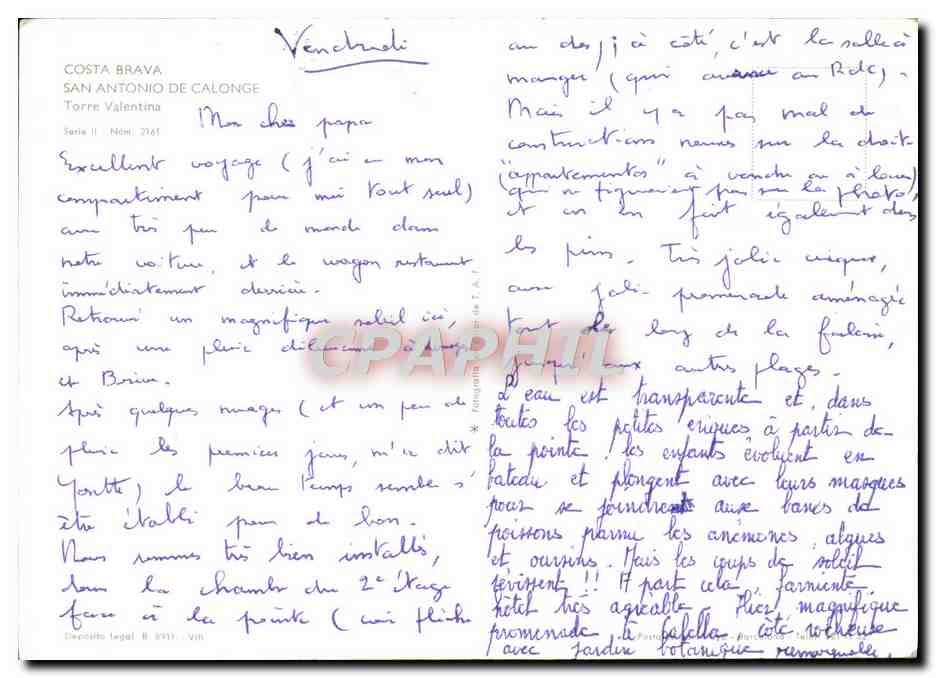 Vendredi
COSTA BRAVA
SAN ANTONIO DE CALONGE
Torre Valentina
Serie II Núm. 2161
Mon cher papa
Excellent voyage (j'ai eu mon
compartiment pour moi tout seul)
avec très peu de monde dans
notre voiture, et le wagon restaurant
immédiatement derrière.
Retrouvé un magnifique soleil ici,
après une pluie diluvienne à
et Brive.
Après quelques nuages (et un peu de
pluie les premiers jours, m'a dit
Yvette) le beau temps semble s'
être établi pour de bon.
Nous sommes très bien installés,
dans la chambre du 2e étage
face à la pointe (voir flèche
Depósito Legal B. 6911 - VIII
Fotografía color de T. A.
CPAPHIL
au dos, à côté, c'est la salle à
manger (qui au Rdc).
Mais il y a pas mal de
constructions neuves sur la droite
("appartementos" à vendre ou à louer),
qui ne figuraient pas sur la photo,
et on en fait également dans
les pins. Très jolie crique,
avec jolie promenade aménagée
tout le long de la falaise,
jusqu'aux autres plages.
L'eau est transparente et, dans
toutes les petites criques à partir de
la pointe, les enfants évoluent en
bateau et plongent avec leurs masques
pour se joindre aux bancs de
poissons parmi les anémones, algues
et oursins. Mais les coups de soleil
sévissent !! A part cela, farniente,
hôtel très agréable. Hier magnifique
promenade à côté rocheuse
avec jardin botanique remarquable.